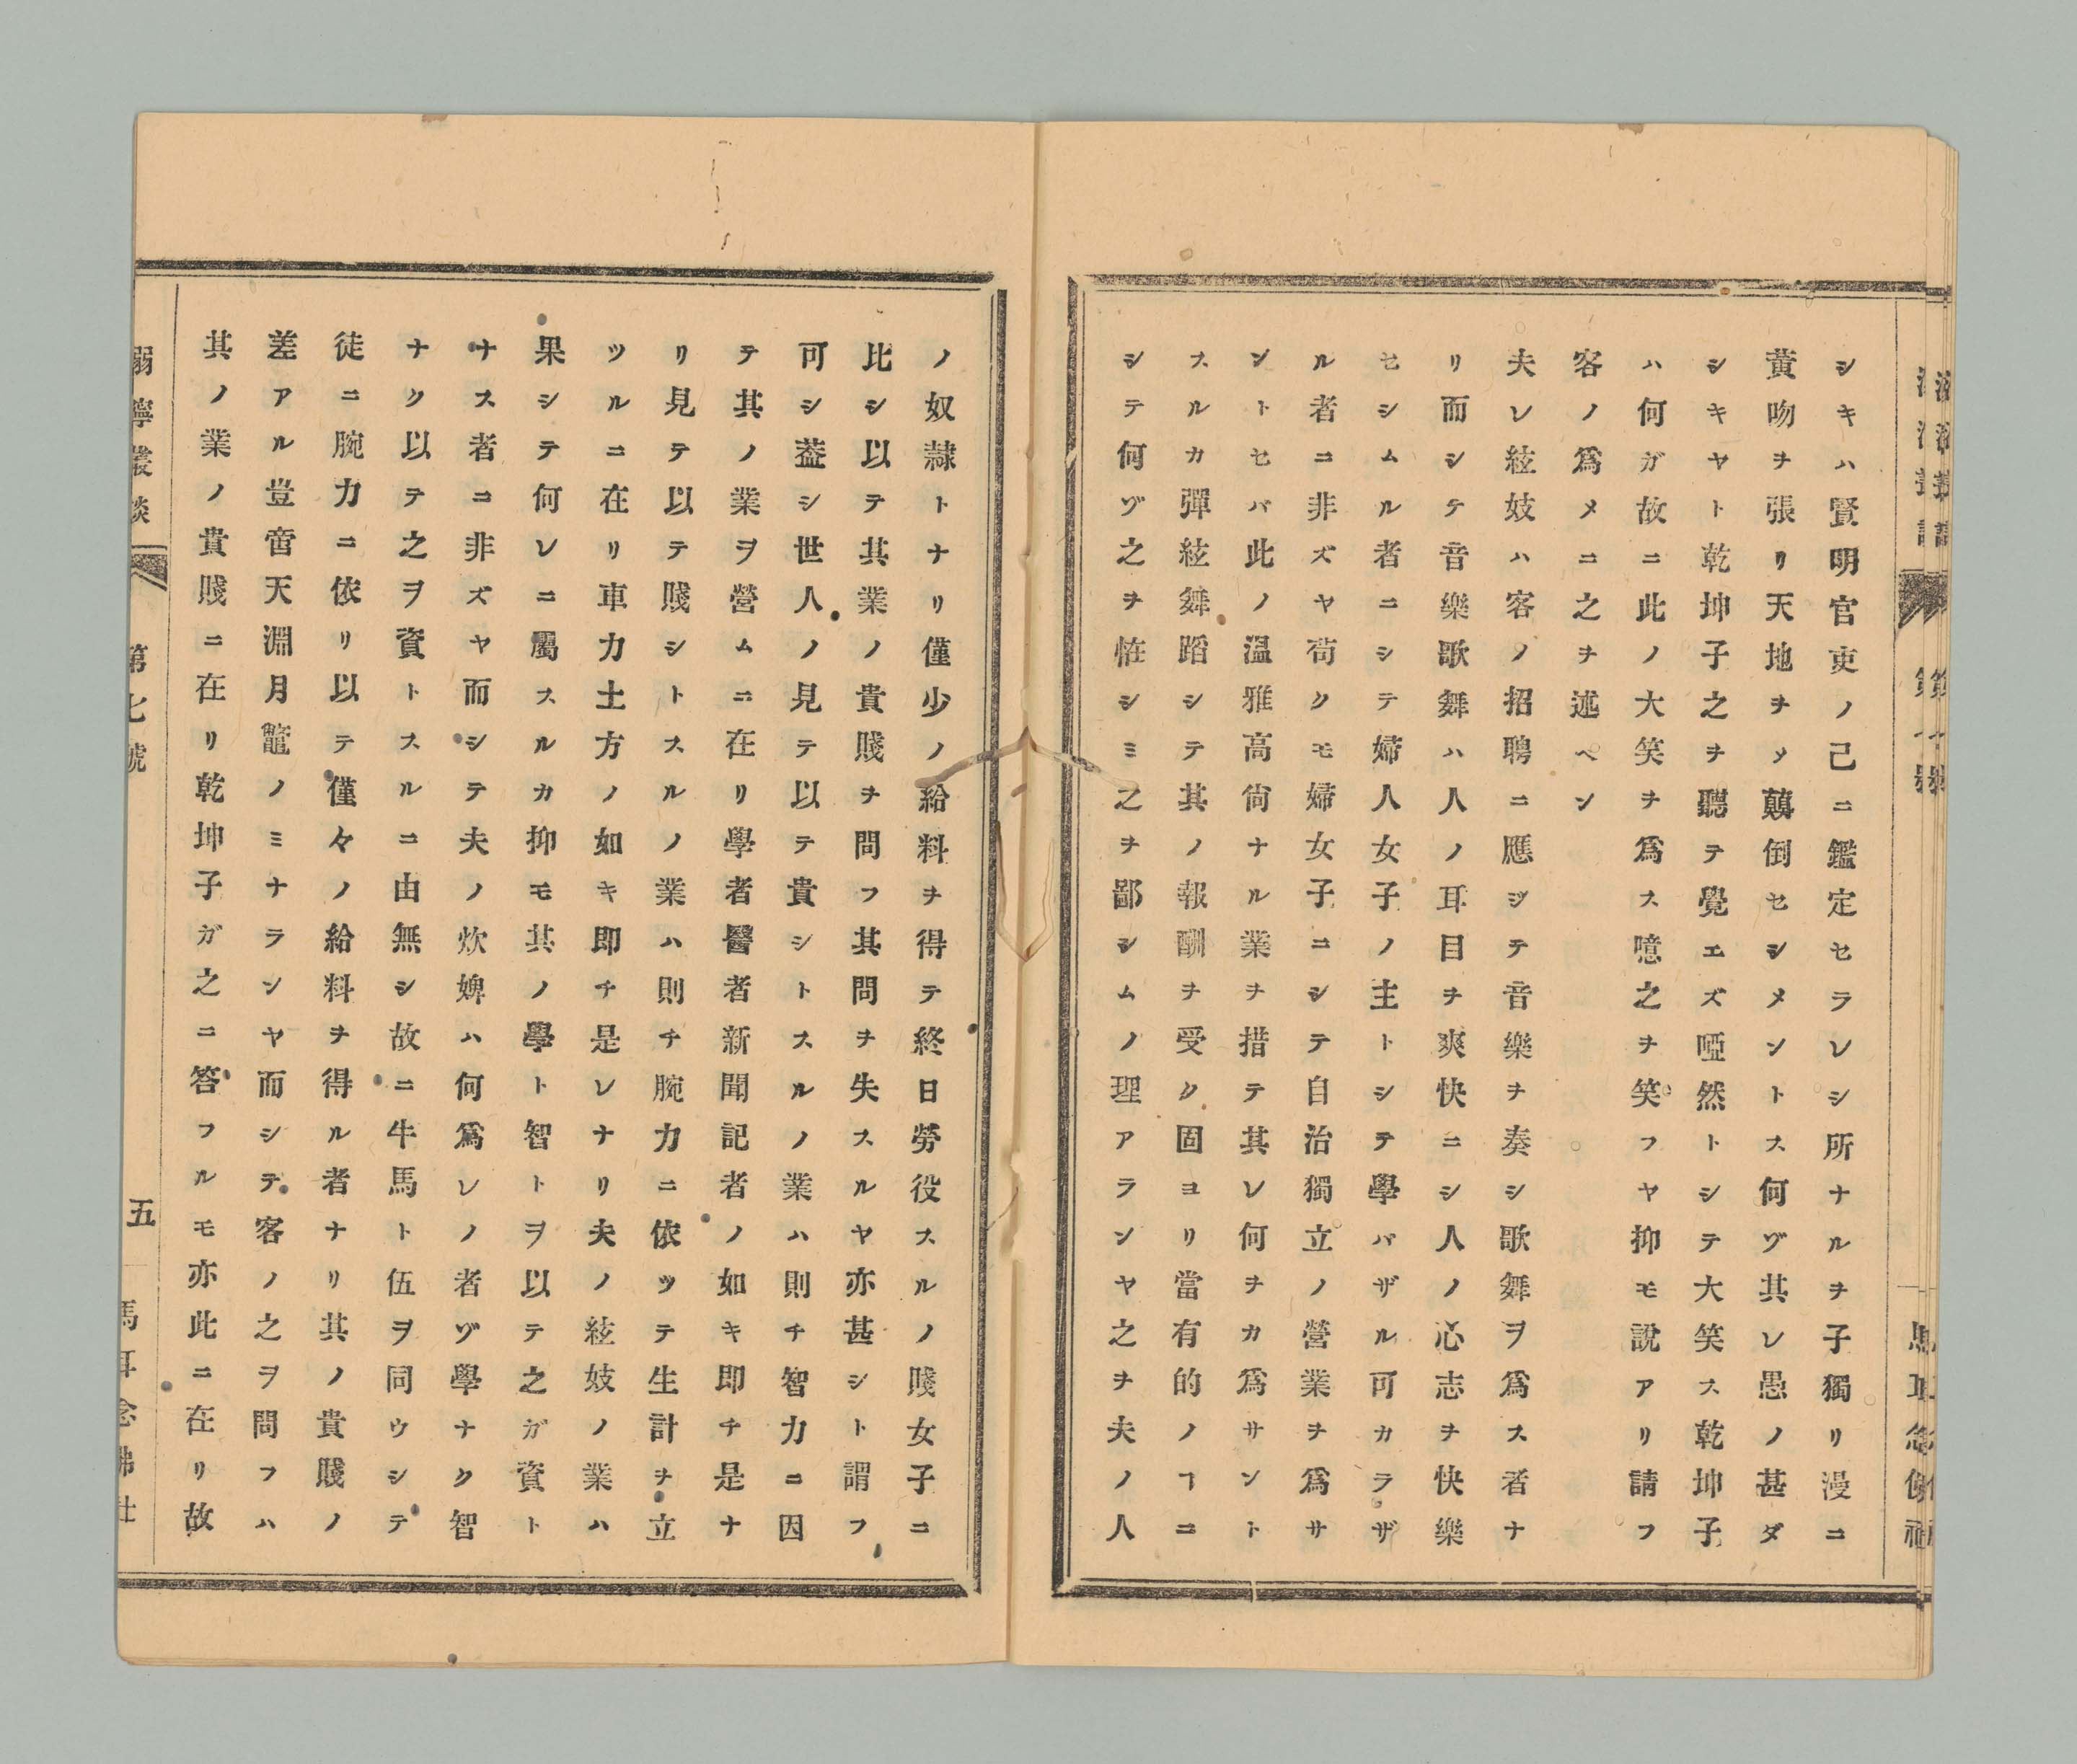 シキハ賢明官吏ノ己ニ鑑定セラレシ所ナルヲ子獨リ漫ニ
黄吻ヲ張リ天地ヲメ顚倒セシメントス何ゾ其レ愚ノ甚ダ
シキヤト乾坤子之ヲ聽テ覺エズ啞然トシテ大笑ス乾坤子
ハ何ガ故ニ此ノ大笑ヲ爲ス噫之ヲ笑フヤ抑モ說アリ請フ
客ノ爲メニ之ヲ述ベン
夫レ絃妓ハ客ノ招聘ニ應ジテ音樂ヲ奏シ歌舞ヲ爲ス者ナ
リ而シテ音樂歌舞ハ人ノ耳目ヲ爽快ニシ人ノ心志ヲ快樂
セシムル者ニシテ婦人女子ノ主トシテ學バザル可カラザ
ル者ニ非ズヤ苟クモ婦女子ニシテ自治獨立ノ營業ヲ爲サ
ントセバ此ノ溫雅高尙ナル業ヲ措テ其レ何ヲカ爲サント
スルカ彈絃舞蹈シテ其ノ報酬ヲ受ク固ヨリ當有的ノヿニ
シテ何ゾ之ヲ恠シミ之ヲ鄙シムノ理アランヤ之ヲ夫ノ人
ノ奴隷トナリ僅少ノ給料ヲ得テ終日勞役スルノ賤女子ニ
比シ以テ其業ノ貴賤ヲ問フ其問ヲ失スルヤ亦甚シト謂フ
可シ葢シ世人ノ見テ以テ貴シトスルノ業ハ則チ智力ニ因
テ其ノ業ヲ營ムニ在リ學者醫者新聞記者ノ如キ即チ是ナ
リ見テ以テ賤シトスルノ業ハ則チ腕力ニ依ツテ生計ヲ立
ツルニ在リ車力土方ノ如キ即チ是レナリ夫ノ絃妓ノ業ハ
果シテ何レニ屬スルカ抑モ其ノ學ト智トヲ以テ之ガ資ト
ナス者ニ非ズヤ而シテ夫ノ炊婢ハ何爲レノ者ゾ學ナク智
ナク以テ之ヲ資トスルニ由無シ故ニ牛馬ト伍ヲ同ウシテ
徒ニ腕力ニ依リ以テ僅々ノ給料ヲ得ル者ナリ其ノ貴賤ノ
差アル豈啻天淵月鼈ノミナランヤ而シテ客ノ之ヲ問フハ
其ノ業ノ貴賤ニ在リ乾坤子ガ之ニ答フルモ亦此ニ在リ故
溺濘叢談 第七號 五 馬耳念佛社